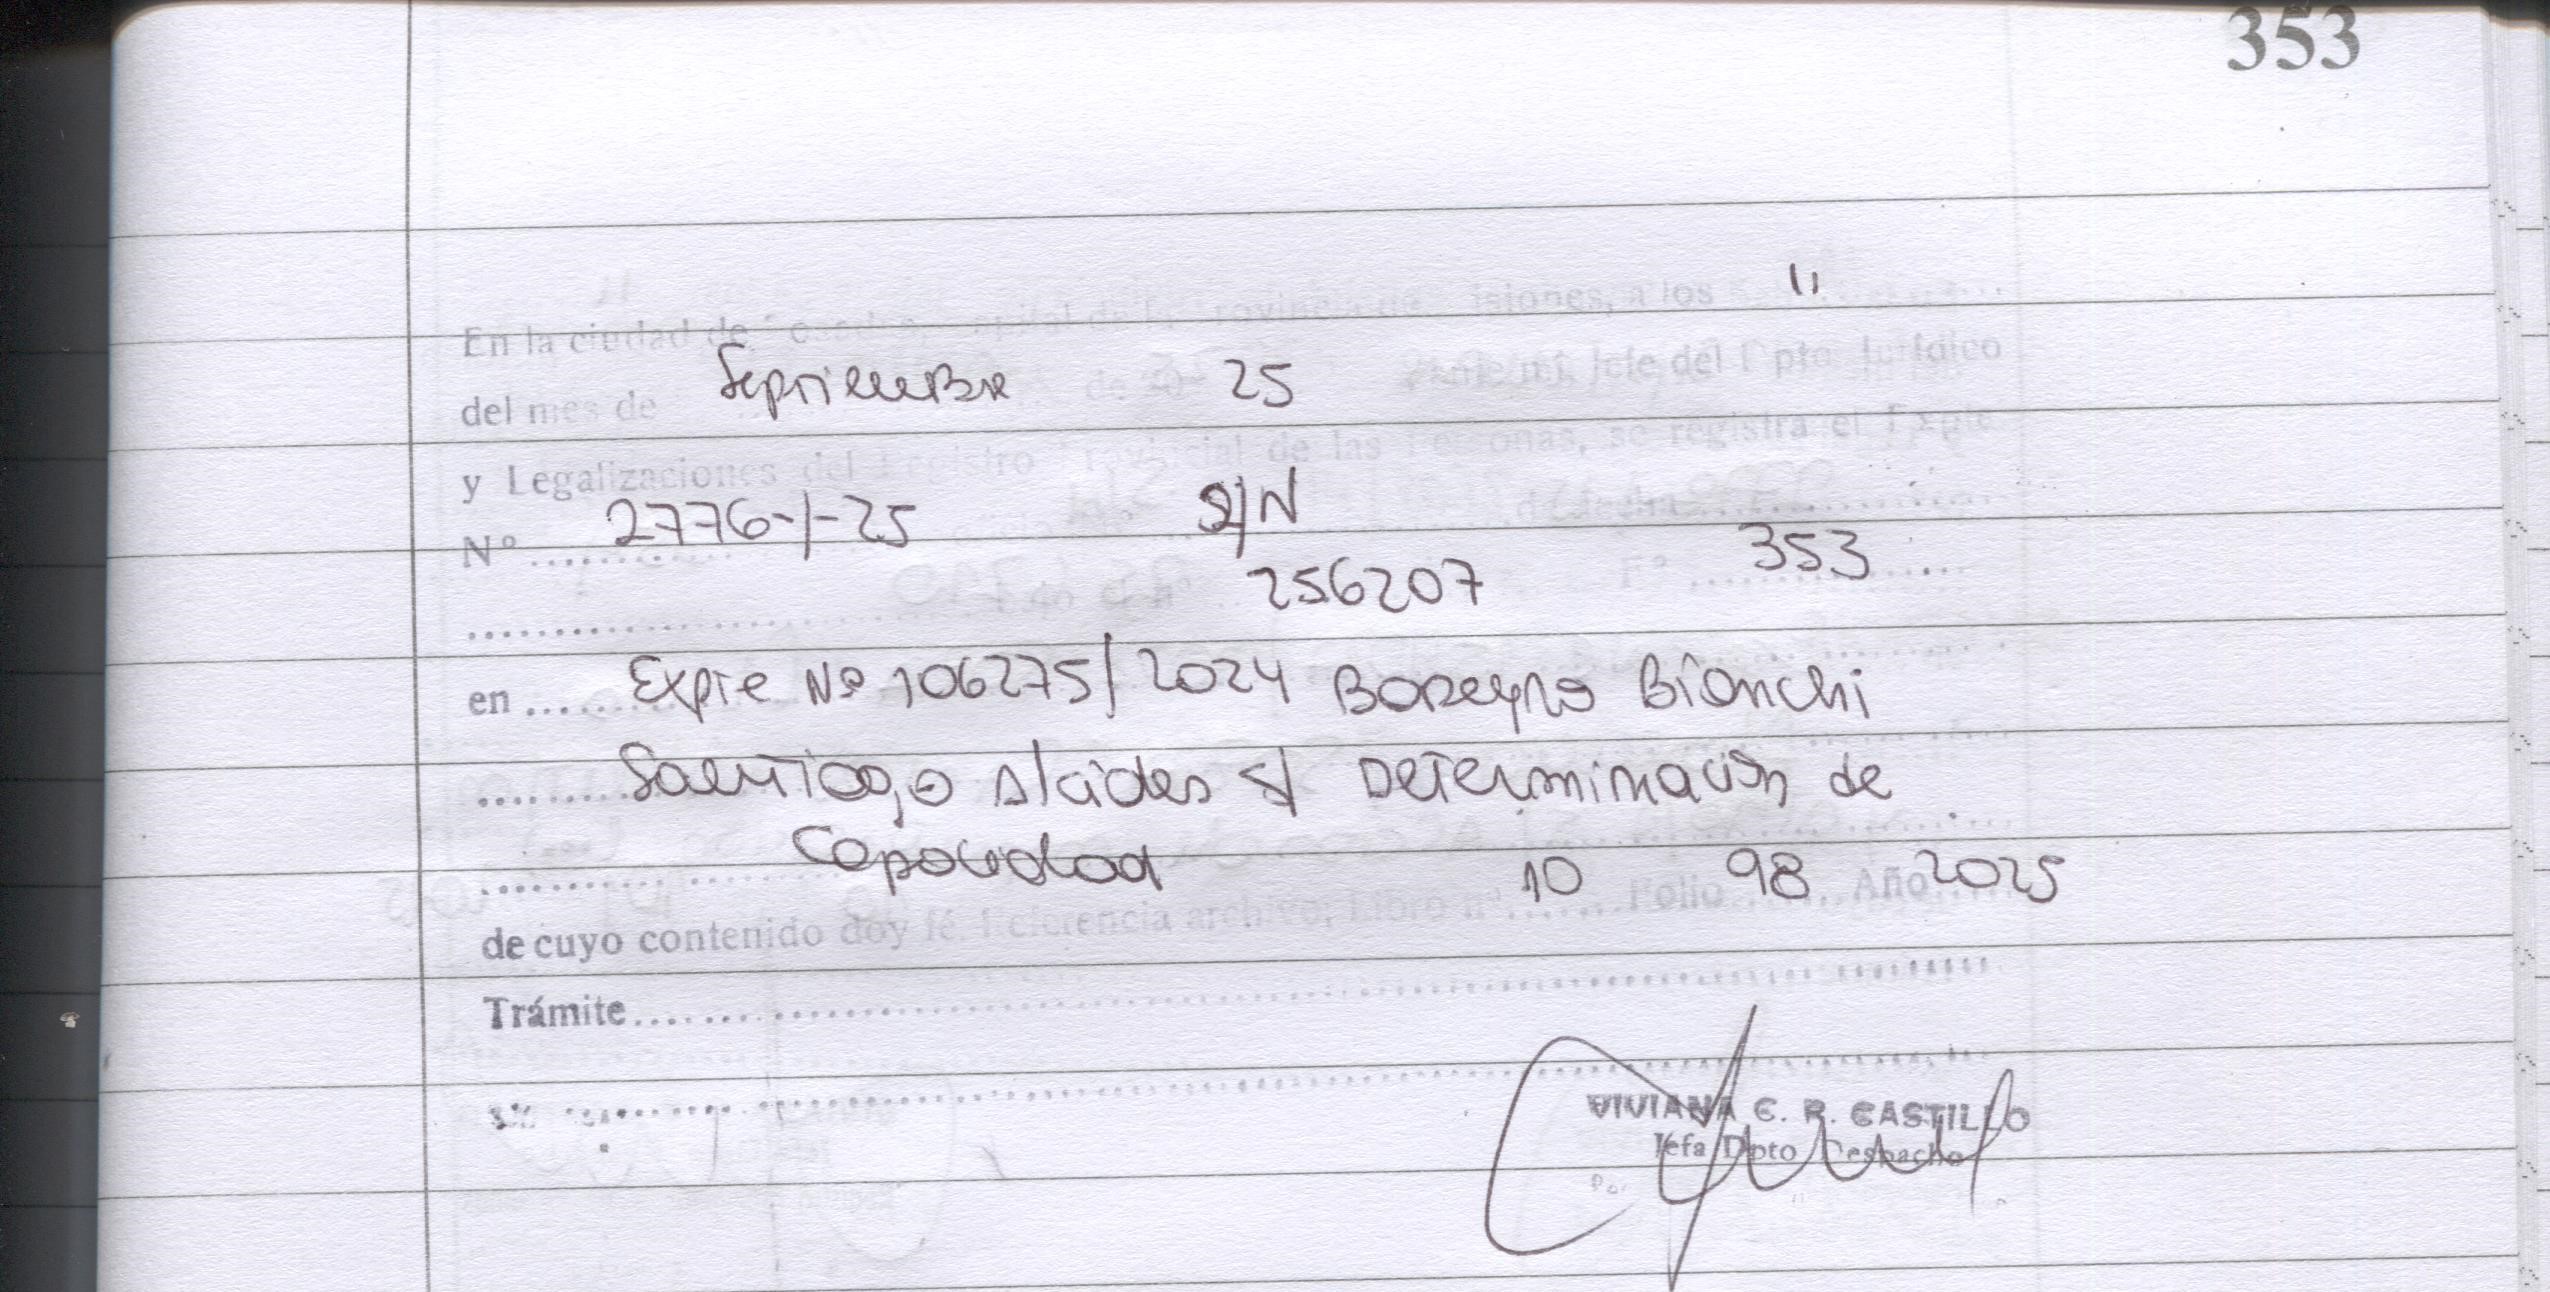 353
En la ciudad de Posadas, capital de la Provincia de Misiones, a los 11
del mes de Septiembre de 20 25 ante mi Jefe del Dpto Jurídico
y Legalizaciones del Registro Provincial de las Personas, se registra el Expte
Nº 2776-/-25 S/N
256207 Fº 353
en Expte Nº 106275/2024 Bianchi
Santiago Alcides S/ Determinación de
Capacidad 10 98 2025
de cuyo contenido doy fé. Referencia archivo, Libro nº Folio Año
Trámite
VIVIANA C. R. CASTILLO
Jefa Dpto Despacho